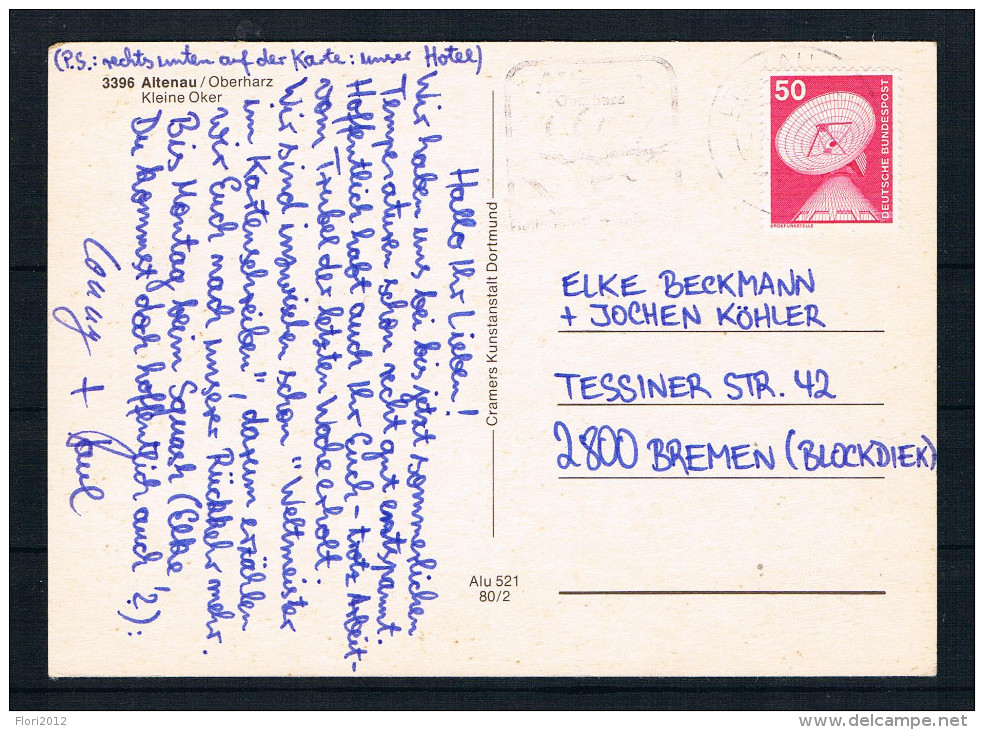 (P.S.: rechts unten auf der Karte: unser Hotel)
3396 Altenau / Oberharz
Kleine Oker
Hallo Ihr Lieben!
Wir haben uns bei bis jetzt sommerlichen
Temperaturen schon recht gut entspannt.
Hoffentlich habt auch Ihr Euch - trotz Arbeit -
vom Trubel der letzten Woche erholt.
Wir sind inzwischen schon "Weltmeister
im Kartenschreiben", darum erzählen
wir Euch nach unserer Rückkehr mehr.
Bis Montag beim Squash (Elke
Du kommst doch hoffentlich auch!?):
+ Paul
Cramers Kunstanstalt Dortmund
Alu 521
80/2
50
DEUTSCHE BUNDESPOST
ERDEFUNKSTELLE
ELKE BECKMANN
+ JOCHEN KÖHLER
TESSINER STR. 42
2800 BREMEN (BLOCKDIEK)
Flori2012
www.delcampe.net